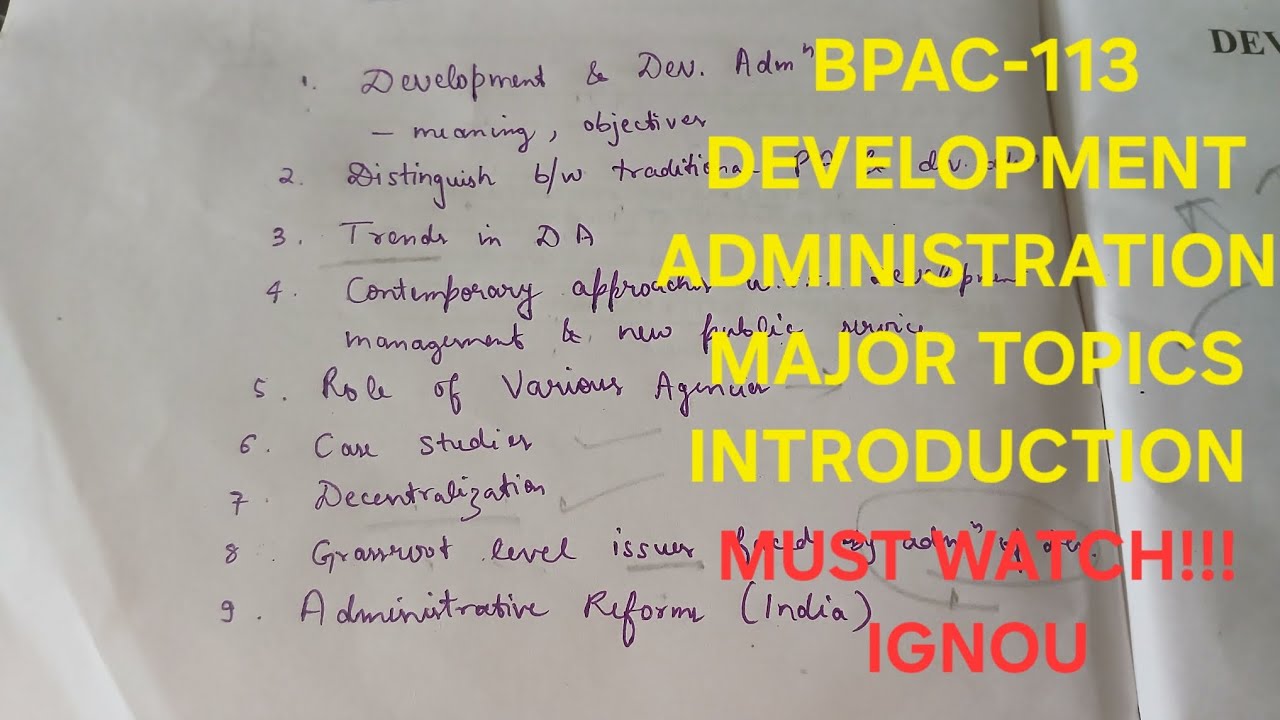 1. Development & Dev. Admⁿ
– meaning, objectives
2. Distinguish b/w traditional
3. Trends in DA
4. Contemporary approaches
management & new public service
5. Role of Various Agencies
6. Case studies
7. Decentralization
8. Grassroot level issues faced by admⁿ of dev.
9. Administrative Reforms (India)
DEV
BPAC-113
DEVELOPMENT
ADMINISTRATION
MAJOR TOPICS
INTRODUCTION
MUST WATCH!!!
IGNOU